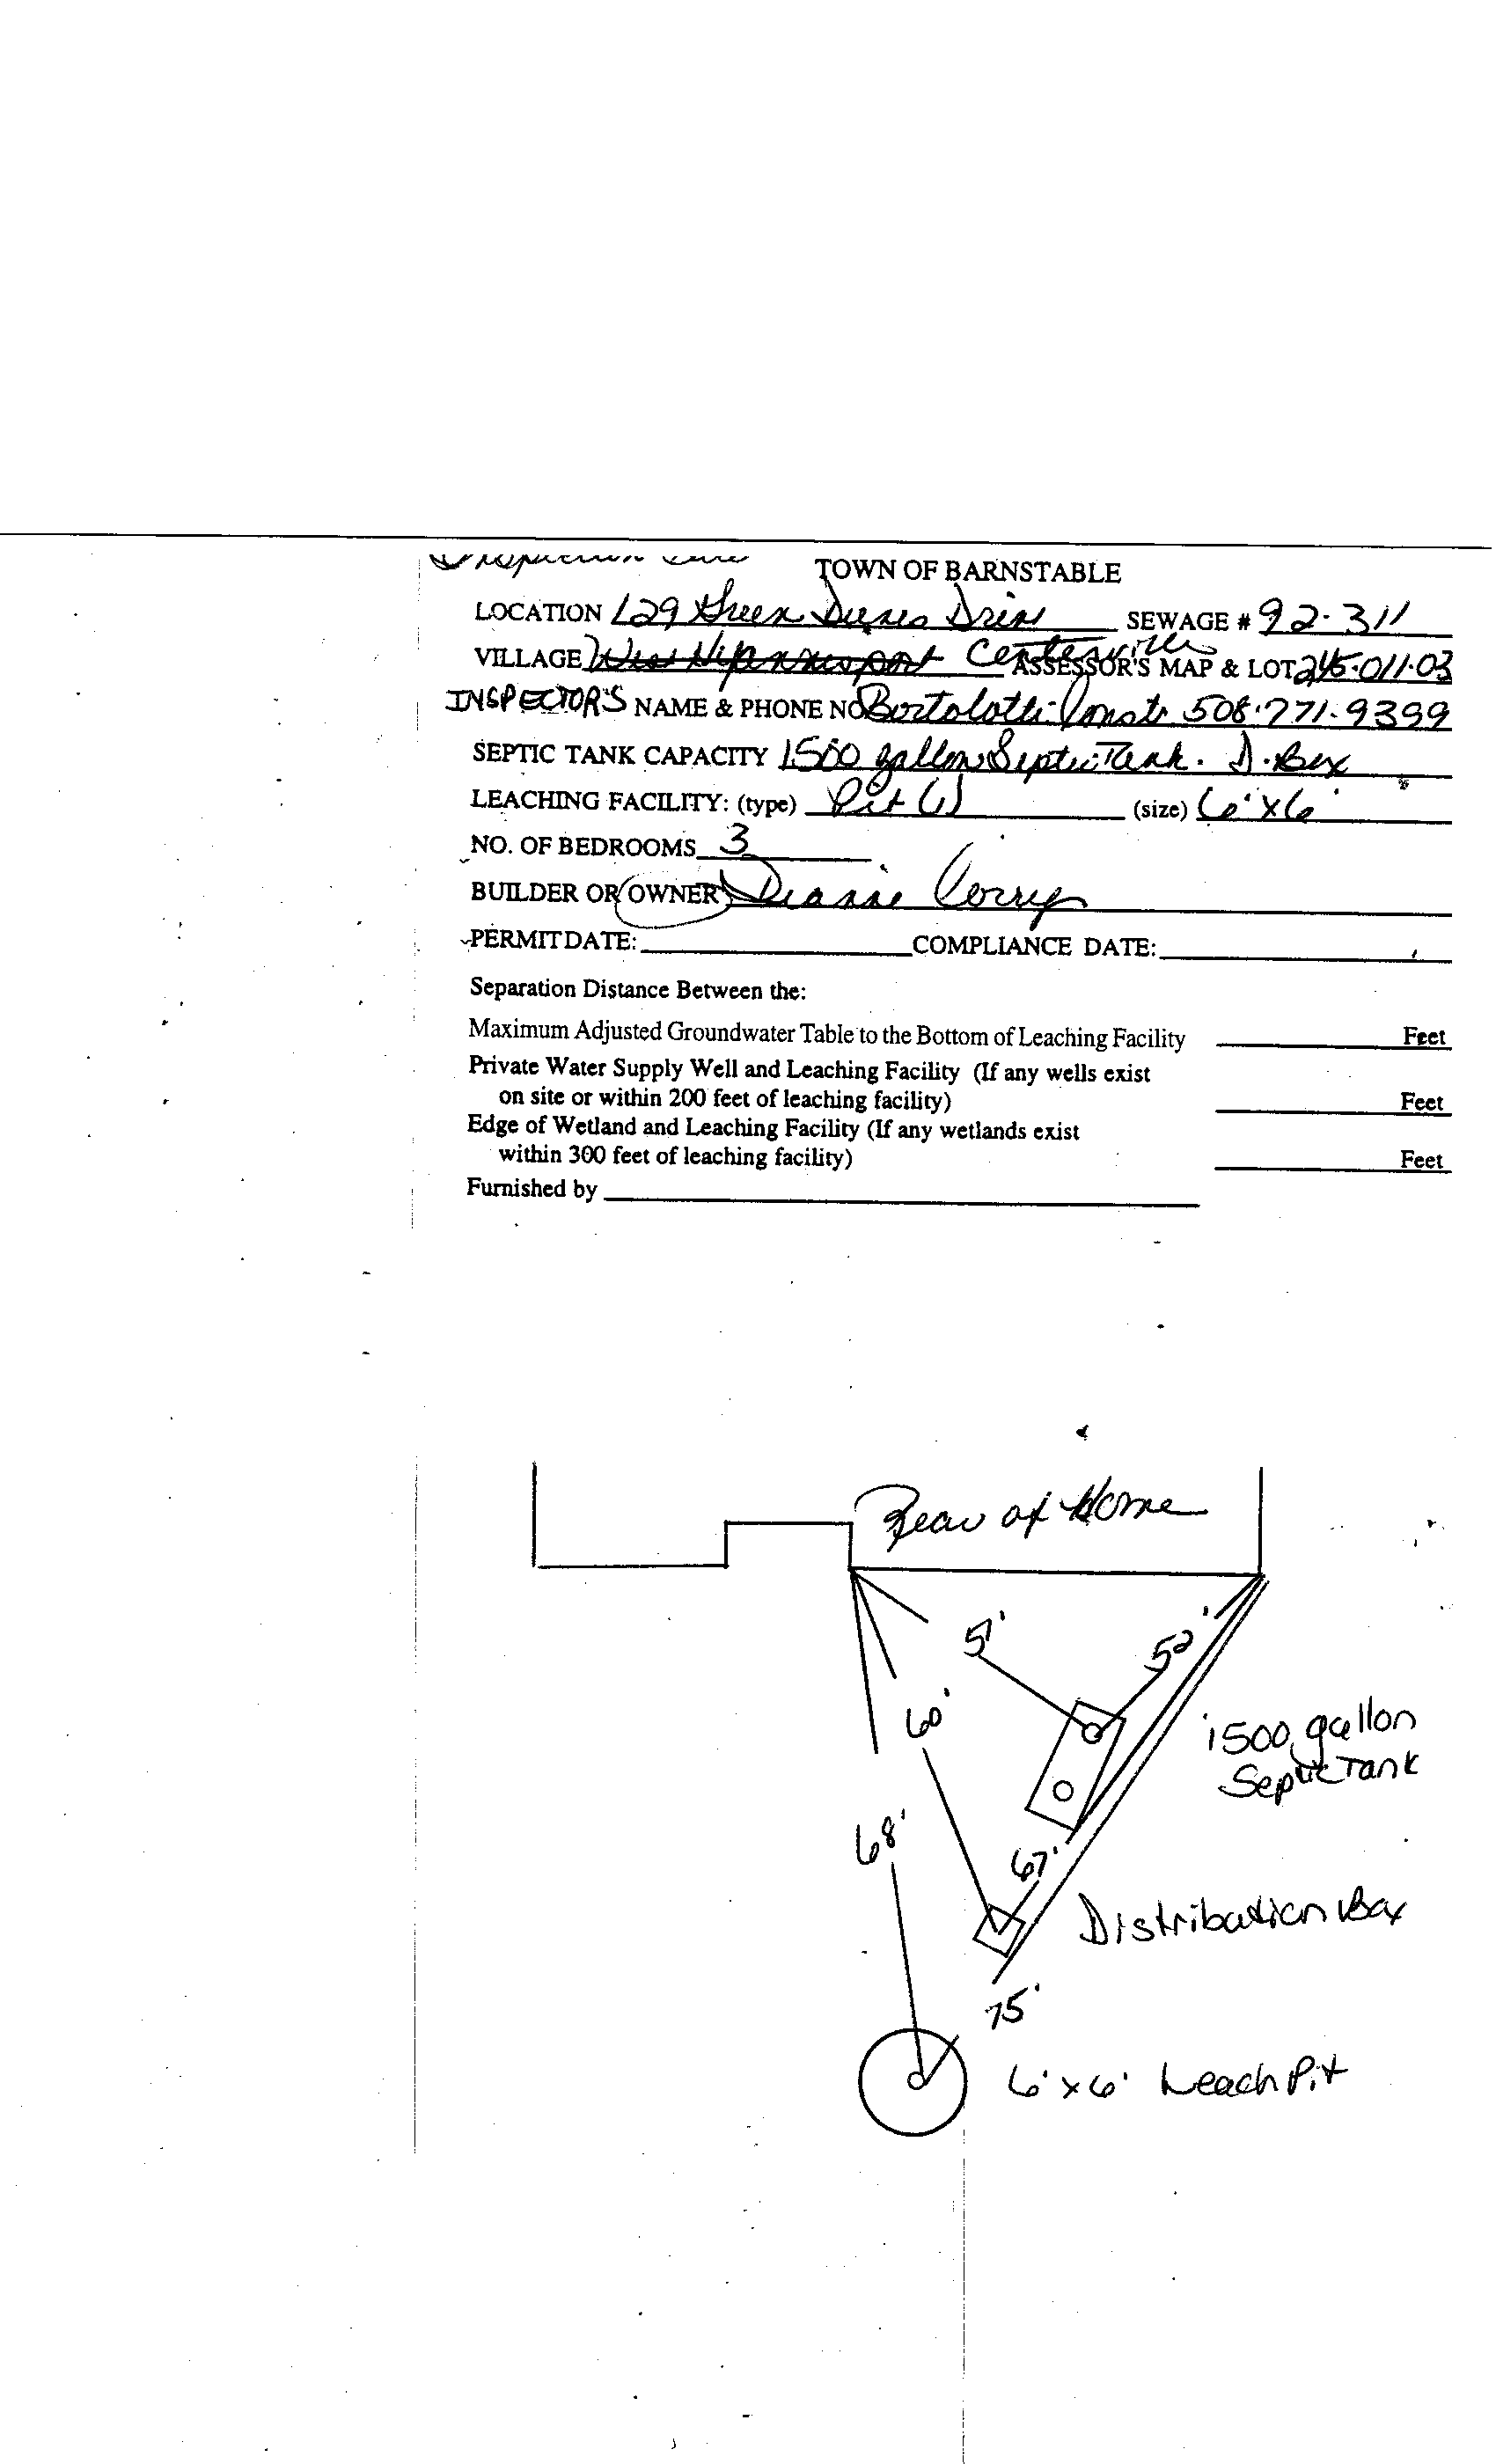 TOWN OF BARNSTABLE
LOCATION 129 Green Dunes Drive SEWAGE # 92-311
VILLAGE West Hyannisport Centerville ASSESSOR'S MAP & LOT 245-011-03
INSPECTOR'S NAME & PHONE NO Bortolotti Constr 508-771-9399
SEPTIC TANK CAPACITY 1500 gallon Septic Tank. D-Box
LEACHING FACILITY: (type) Pit (1) (size) 6'x6'
NO. OF BEDROOMS 3
BUILDER OR OWNER Dianne
PERMIT DATE: COMPLIANCE DATE:
Separation Distance Between the:
Maximum Adjusted Groundwater Table to the Bottom of Leaching Facility Feet
Private Water Supply Well and Leaching Facility (If any wells exist
on site or within 200 feet of leaching facility) Feet
Edge of Wetland and Leaching Facility (If any wetlands exist
within 300 feet of leaching facility) Feet
Furnished by
Rear of Home
51'
52'
60'
1500 gallon
Septic Tank
68'
67'
Distribution Box
75'
6'x6' Leach Pit